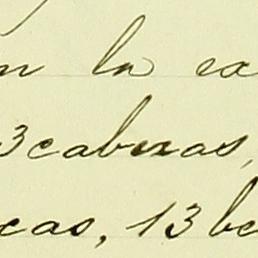 n la ex
3 cabezas,
cas, 13 be